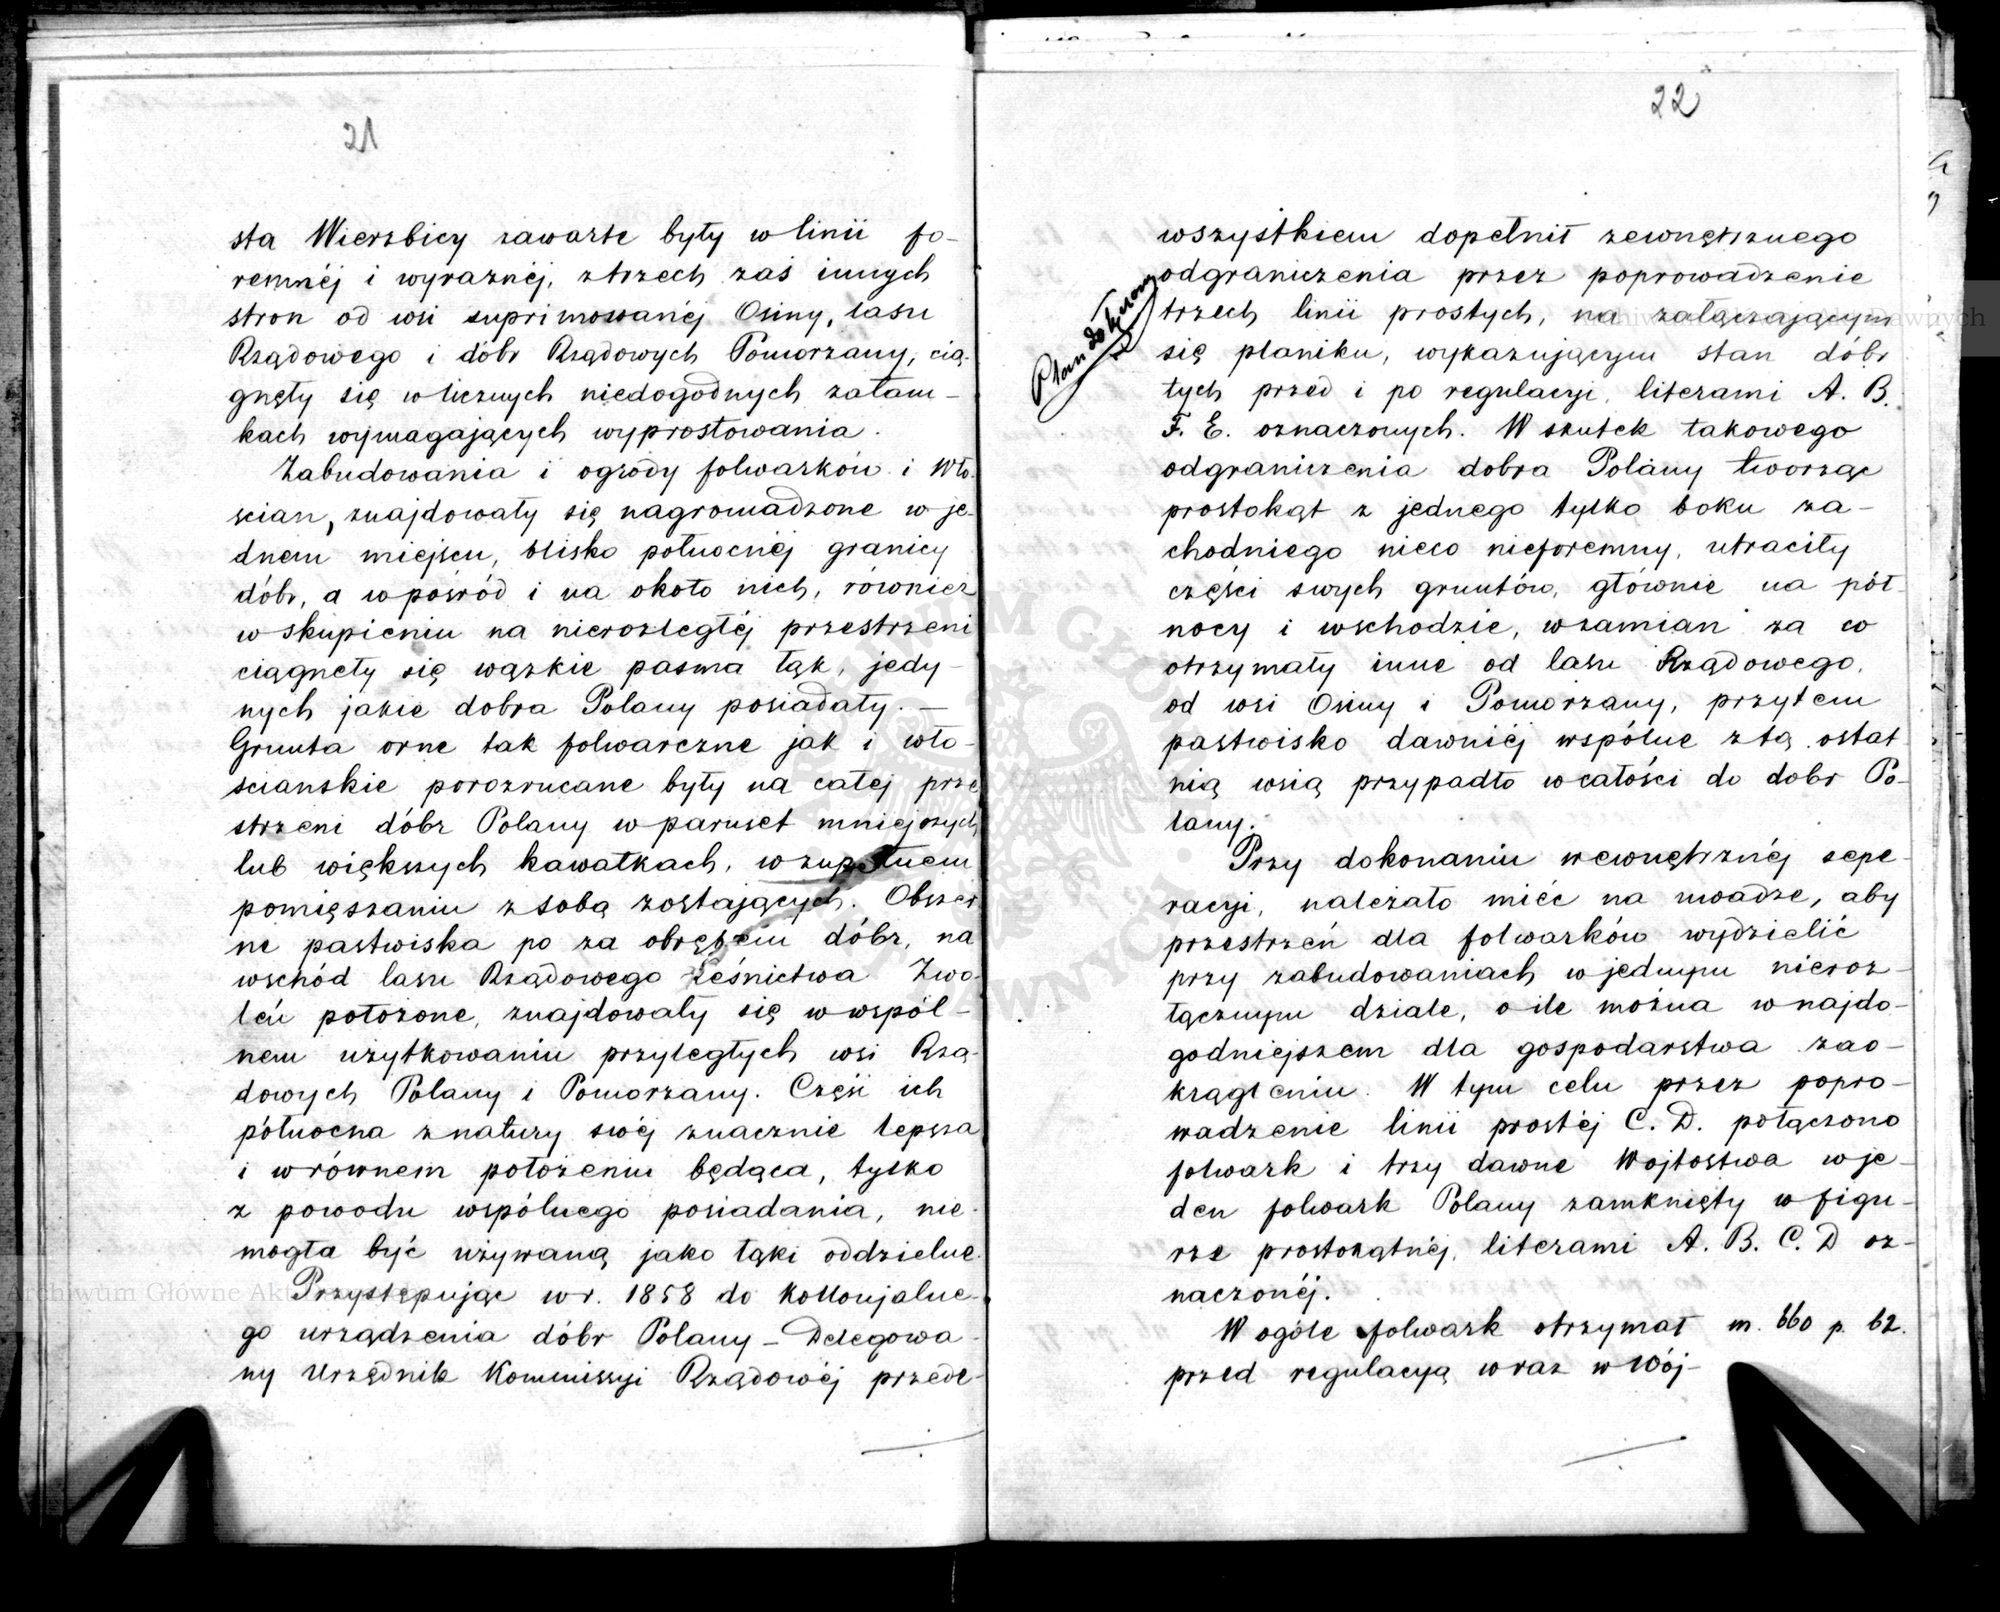 21
sta Wierzbicy zawarte były w linii fo-
remnéj i wyraznéj, z trzech zaś innych
stron od wsi suprimowanéj Osiny, lasu
Rządowego i dóbr Rządowych Pomorzany, cią-
gnęły się w licznych niedogodnych załam-
kach wymagających wyprostowania.
Zabudowania i ogrody folwarków i Wło-
ścian, znajdowały się nagromadzone w je-
dnem miejscu, blisko północnéj granicy
dóbr, a w pośród i na około nich, również
w skupieniu na nierozległéj przestrzeni
ciągneły się wązkie pasma łąk, jedy-
nych jakie dobra Polany posiadały. —
Grunta orne tak folwarczne jak i wło-
scianskie porozrucane były na całej prze
strzeni dóbr Polany w paruset mniejszych
lub większych kawałkach, w zupełnem
pomięszaniu z sobą zostających. Obszer
ne pastwiska po za obrębem dóbr, na
wschód lasu Rządowego Leśnictwa Zwo-
leń położone, znajdowały się w wspól-
nem użytkowaniu przyległych wsi Rzą-
dowych Polany i Pomorzany. Częśś ich
północna z natury swéj znacznie lepsza
i w równem położeniu będąca, tylko
z powodu wspólnego posiadania, nie-
mogła być używaną jako łąki oddzielne.
Przystępując w r. 1858 do kollonjalne-
go urządzenia dóbr Polany – Delegowa-
ny Urzędnik Kommissyi Rządowéj przede-
22
Plan dołączony
wszystkiem dopełnił zewnętrznego
odgraniczenia przez poprowadzenie
trzech linii prostych, na załączającym
się planiku, wykazującym stan dóbr
tych przed i po regulacyi, literami A. B.
F. E. oznaczonych. W skutek takowego
odgraniczenia dobra Polany tworząc
prostokąt z jednego tylko boku za-
chodniego nieco nieforemny, utraciły
części swych gruntów, głównie na pół-
nocy i wschodzie, wzamian za co
otrzymały inne od lasu Rządowego,
od wsi Osiny i Pomorzany, przytem
pastwisko dawniéj wspólne z tą ostat
nią wsią przypadło w całości do dobr Po-
lany.
Przy dokonaniu wewnętrznéj sepe-
racyi, należało miéć na uwadze, aby
przestrzeń dla folwarków wydzielić
przy zabudowaniach w jednym nieroz-
łącznym dziale, o ile można w najdo-
godniejszem dla gospodarstwa zao-
krągleniu. W tym celu przez popro-
wadzenie linii prostéj C. D. połączono
folwark i trzy dawne Wojtostwa w je-
den folwark Polany zamknięty w figu-
rze prostokątnéj, literami A. B. C. D oz-
naczonéj.
W ogóle folwark otrzymał m. 660 p. 62.
przed regulacyą wraz w Wój-